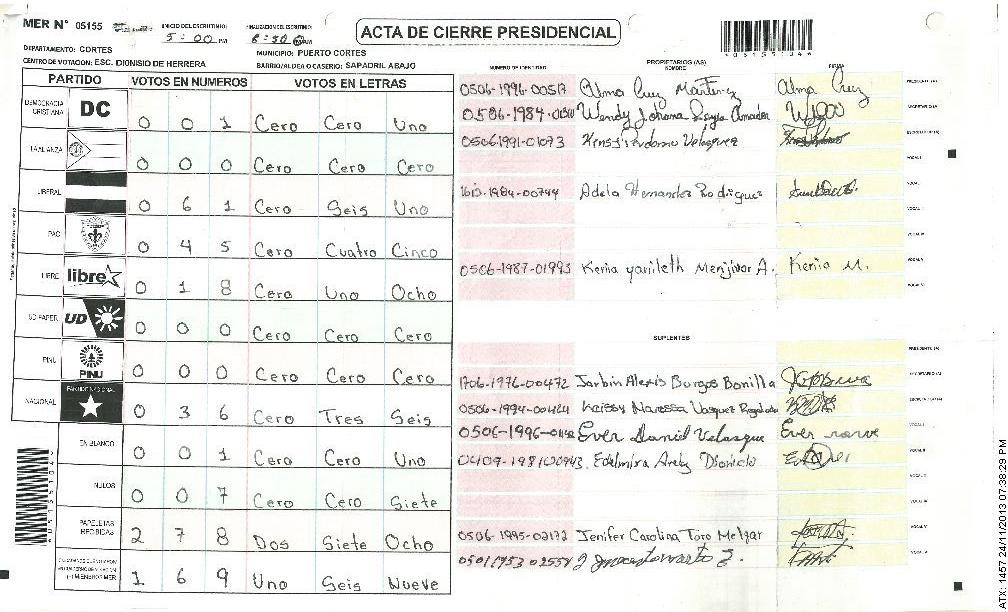 MER N° 05155
INICIO DEL ESCRUTINIO: 5:00 PM
FINALIZACION DEL ESCRUTINIO: 6:50 PM
ACTA DE CIERRE PRESIDENCIAL
DEPARTAMENTO: CORTES
MUNICIPIO: PUERTO CORTES
CENTRO DE VOTACION: ESC. DIONISIO DE HERRERA
BARRIO/ALDEA O CASERIO: SAPADRIL ABAJO
PARTIDO VOTOS EN NUMEROS VOTOS EN LETRAS
DEMOCRACIA CRISTIANA DC 0 0 1 Cero Cero Uno
LA ALIANZA 0 0 0 Cero Cero Cero
LIBERAL 0 6 1 Cero Seis Uno
PAC 0 4 5 Cero Cuatro Cinco
LIBRE libre 0 1 8 Cero Uno Ocho
UD FAPER UD 0 0 0 Cero Cero Cero
PINU PINU 0 0 0 Cero Cero Cero
NACIONAL PARTIDO NACIONAL 0 3 6 Cero Tres Seis
EN BLANCO 0 0 1 Cero Cero Uno
NULOS 0 0 7 Cero Cero Siete
PAPELETAS RECIBIDAS 2 7 8 Dos Siete Ocho
(+) MIEMBROS MER 1 6 9 Uno Seis Nueve
NUMERO DE IDENTIDAD PROPIETARIOS (AS) NOMBRE FIRMA
0506-1996-00517 Alma Cruz Martinez Alma Cruz
Wendy Johana Amador
0506-1991-01073 Velasquez
1613-1984-00744 Adela Hernandez Rodriguez
0506-1987-01993 Kenia Yamileth Menjivar A. Kenia M.
SUPLENTES
1706-1976-00472 Jarbin Alexis Burgos Bonilla
Vasquez
0506-1996- Ever Daniel Velasque Ever
Edelmira Arely Dionicio
0506-1995-02172 Jenifer Carolina Toro Melgar
0501 1953 02554
ATX: 1457 24/11/2013 07:38:29 PM